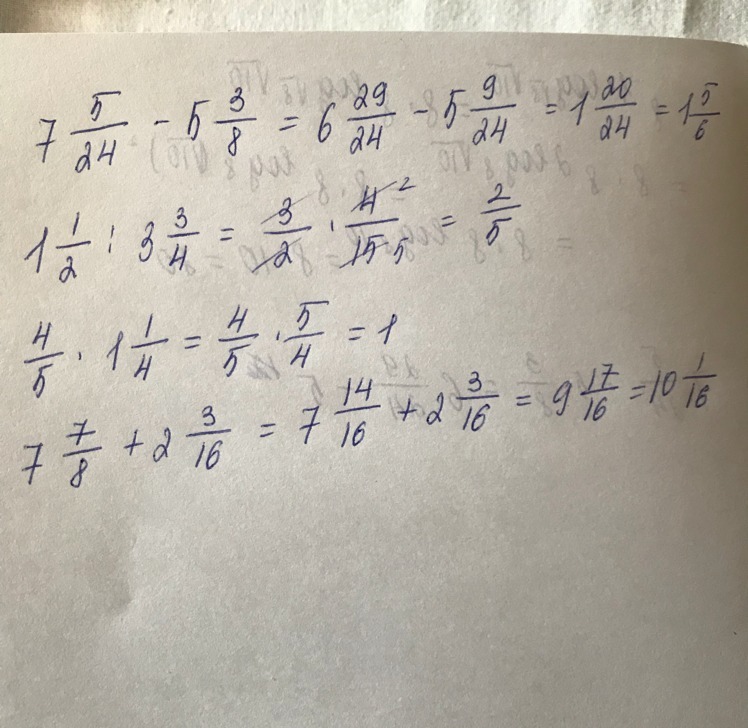 7 5/24 - 5 3/8 = 6 29/24 - 5 9/24 = 1 20/24 = 1 5/6
1 1/2 : 3 3/4 = 3/2 · 4/15 2 5 = 2/5
4/5 · 1 1/4 = 4/5 · 5/4 = 1
7 7/8 + 2 3/16 = 7 14/16 + 2 3/16 = 9 17/16 = 10 1/16